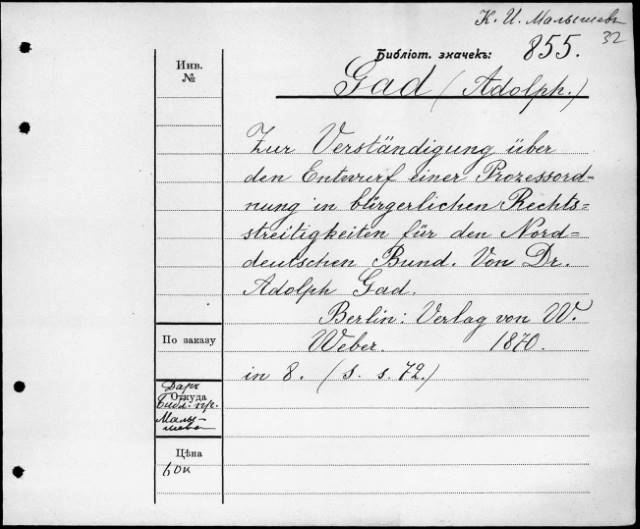 К. И. Малышевъ
32
Библіот. значекъ: 855.
Инв.
№
Gad (Adolph.)
Zur Verständigung über
den Entwurf einer Prozessord-
nung in bürgerlichen Rechts=
streitigkeiten für den Nord=
deutschen Bund. Von Dr.
Adolph Gad.
Berlin: Verlag von W.
Weber. 1870.
По заказу
in 8. (S. s. 72.)
Даръ
Откуда
Библ. пр.
Малы-
шева
Цѣна
60к